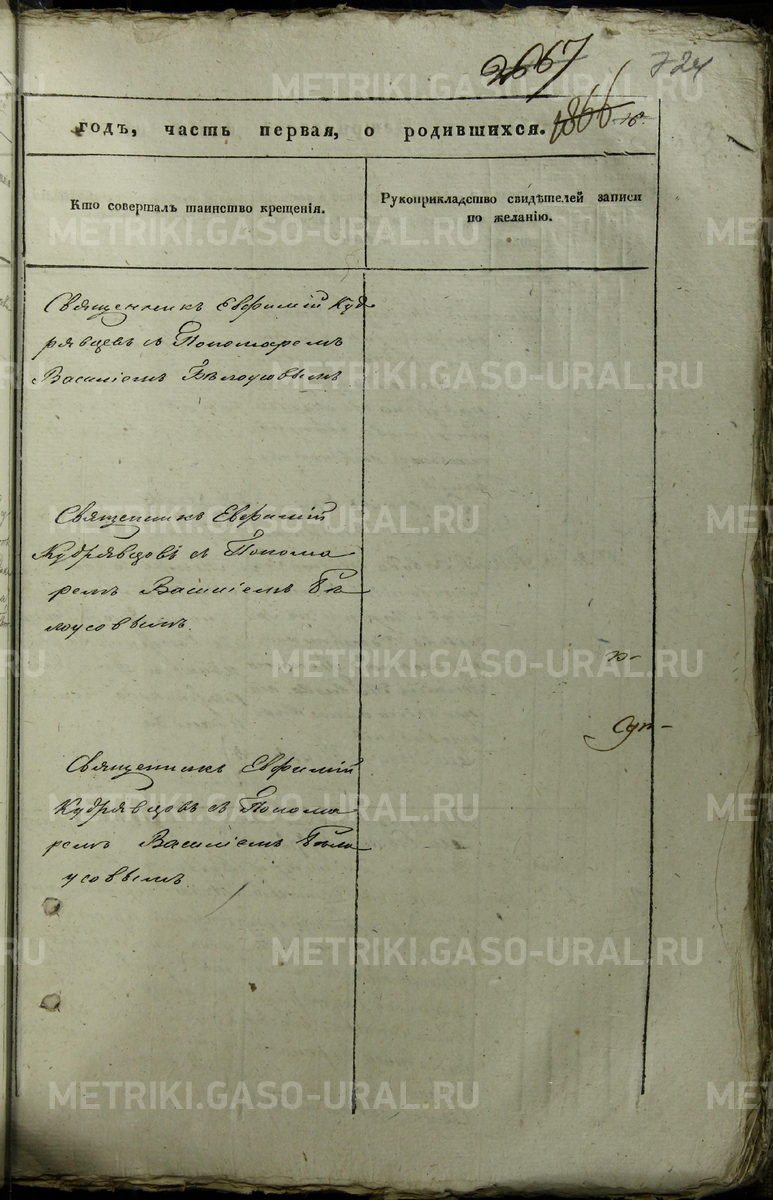 2667
724
годъ, часть первая, о родившихся.
1866
Кто совершалъ таинство крещенія.
Рукоприкладство свидѣтелей записи
по желанію.
Священникъ Евфимій Куд
рявцевъ съ Пономаремъ
Василіемъ Бѣлоусовымъ
Священникъ Евфимій
Кудрявцовъ съ Понома
ремъ Василіемъ Бѣ
лоусовымъ.
Священникъ Евфимій
Кудрявцовъ съ Понома
ремъ Василіемъ Бѣло
усовымъ.
METRIKI.GASO-URAL.RU